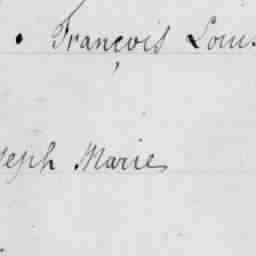 François Louis
seph Marie